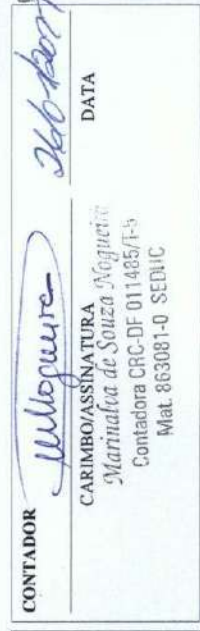 CONTADOR
MNogueira
CARIMBO/ASSINATURA DATA
Marinalva de Souza Nogueira
Contadora CRC-DF 011485/T-5
Mat. 863081-0 SEDUC